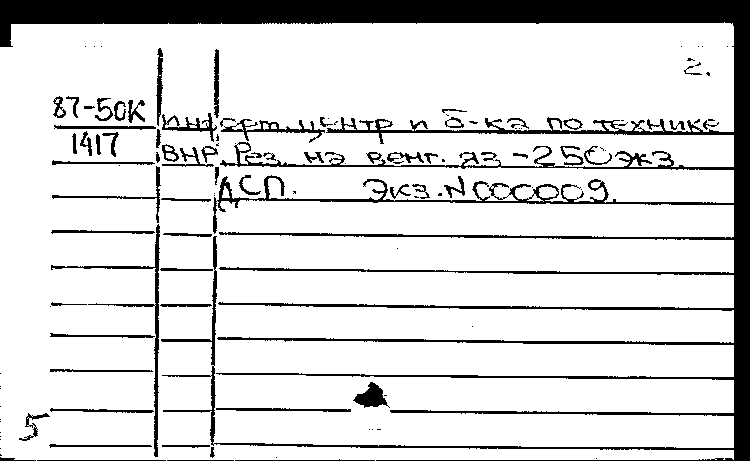 2.
87-50К информ. центр и б-ка по технике
1417 ВНР. Рез. на венг. яз - 250 экз.
ДСП. Экз. N 000009.
5